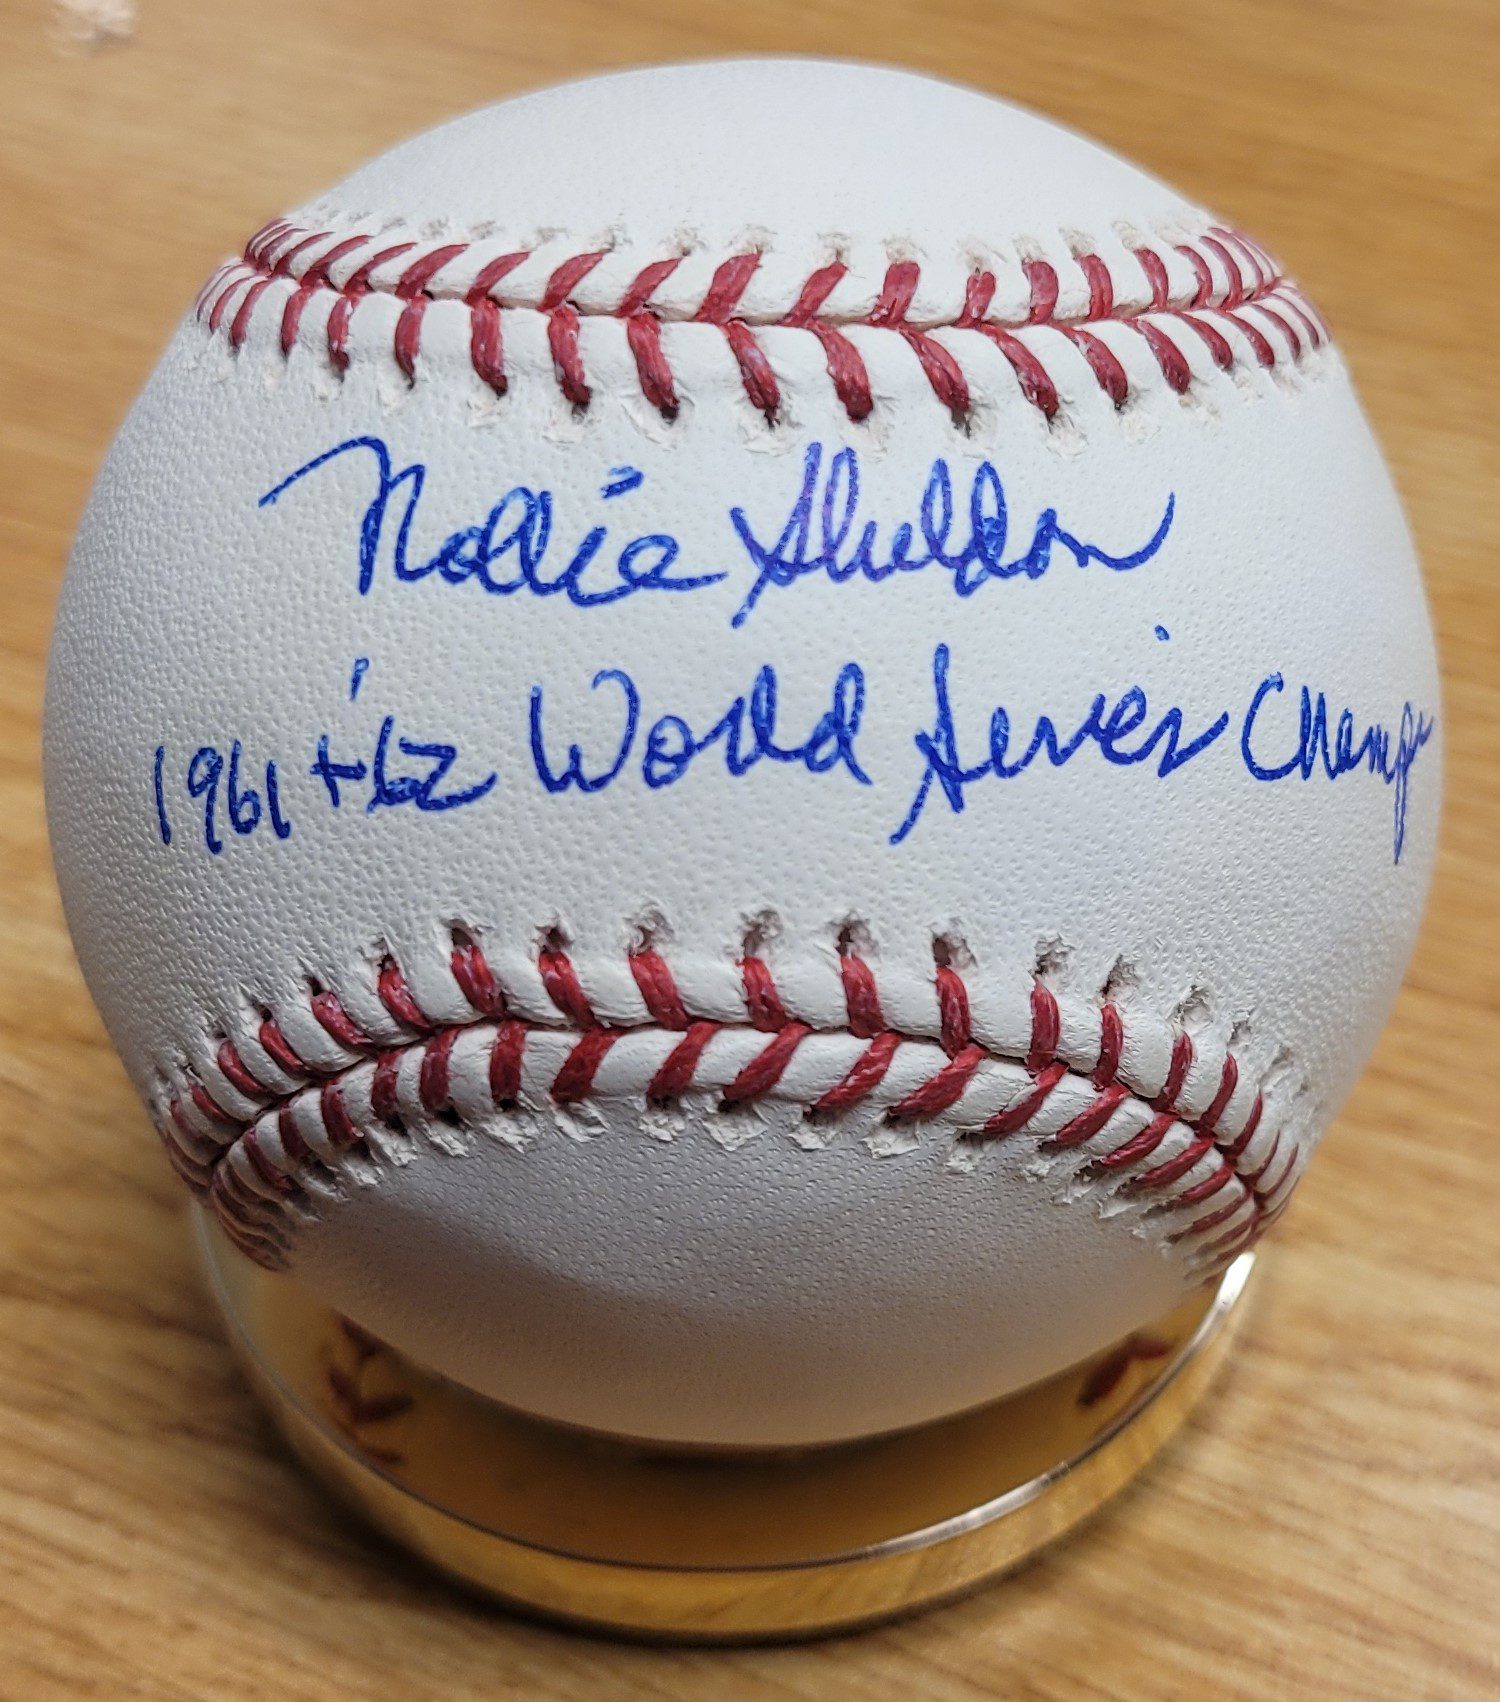 Rollie Sheldon
1961 + '62 World Series Champs